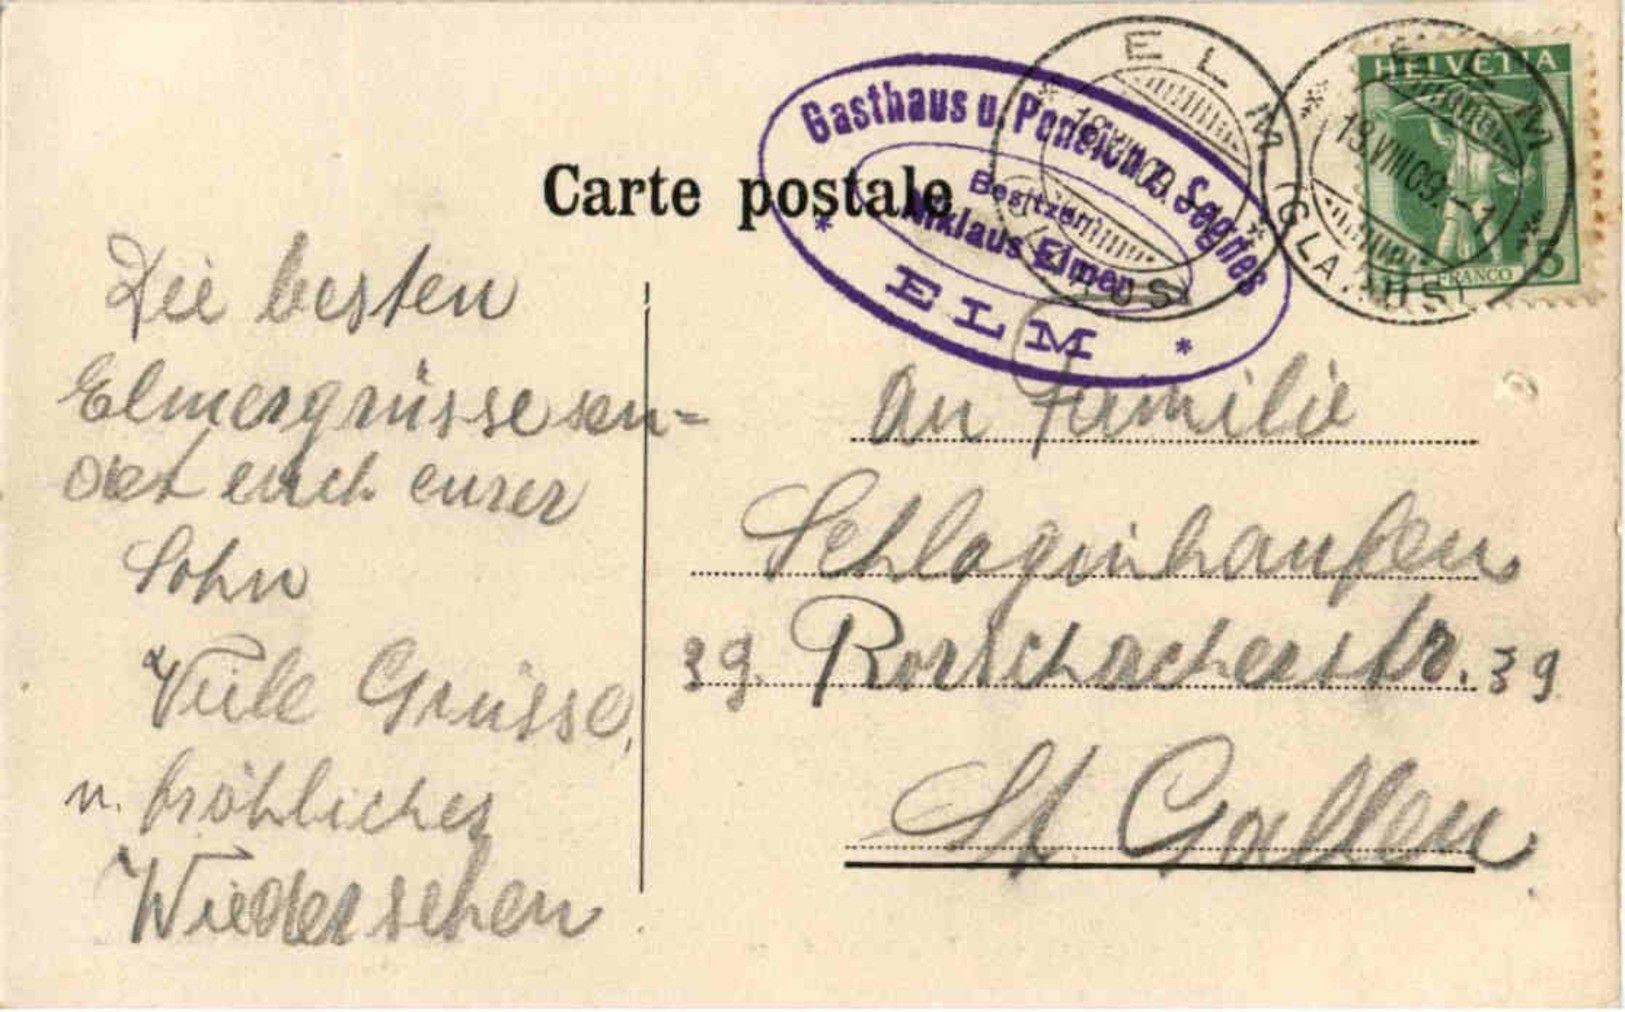 Carte postale
Gasthaus u. Pension z. Segnes
Besitzer
Niklaus Elmer
* ELM *
ELM
(GLARUS)
18.VIII.09.
ELM
(GLARUS)
18.VIII.09.–1
HELVETIA
FRANCO
5
Die besten
Elmergrüsse sen=
det euch eurer
Sohn
Viele Grüsse,
u. fröhliches
Wiedersehen
An Familie
Schlaginhaufen
39. Rorschacherstr. 39
St. Gallen.